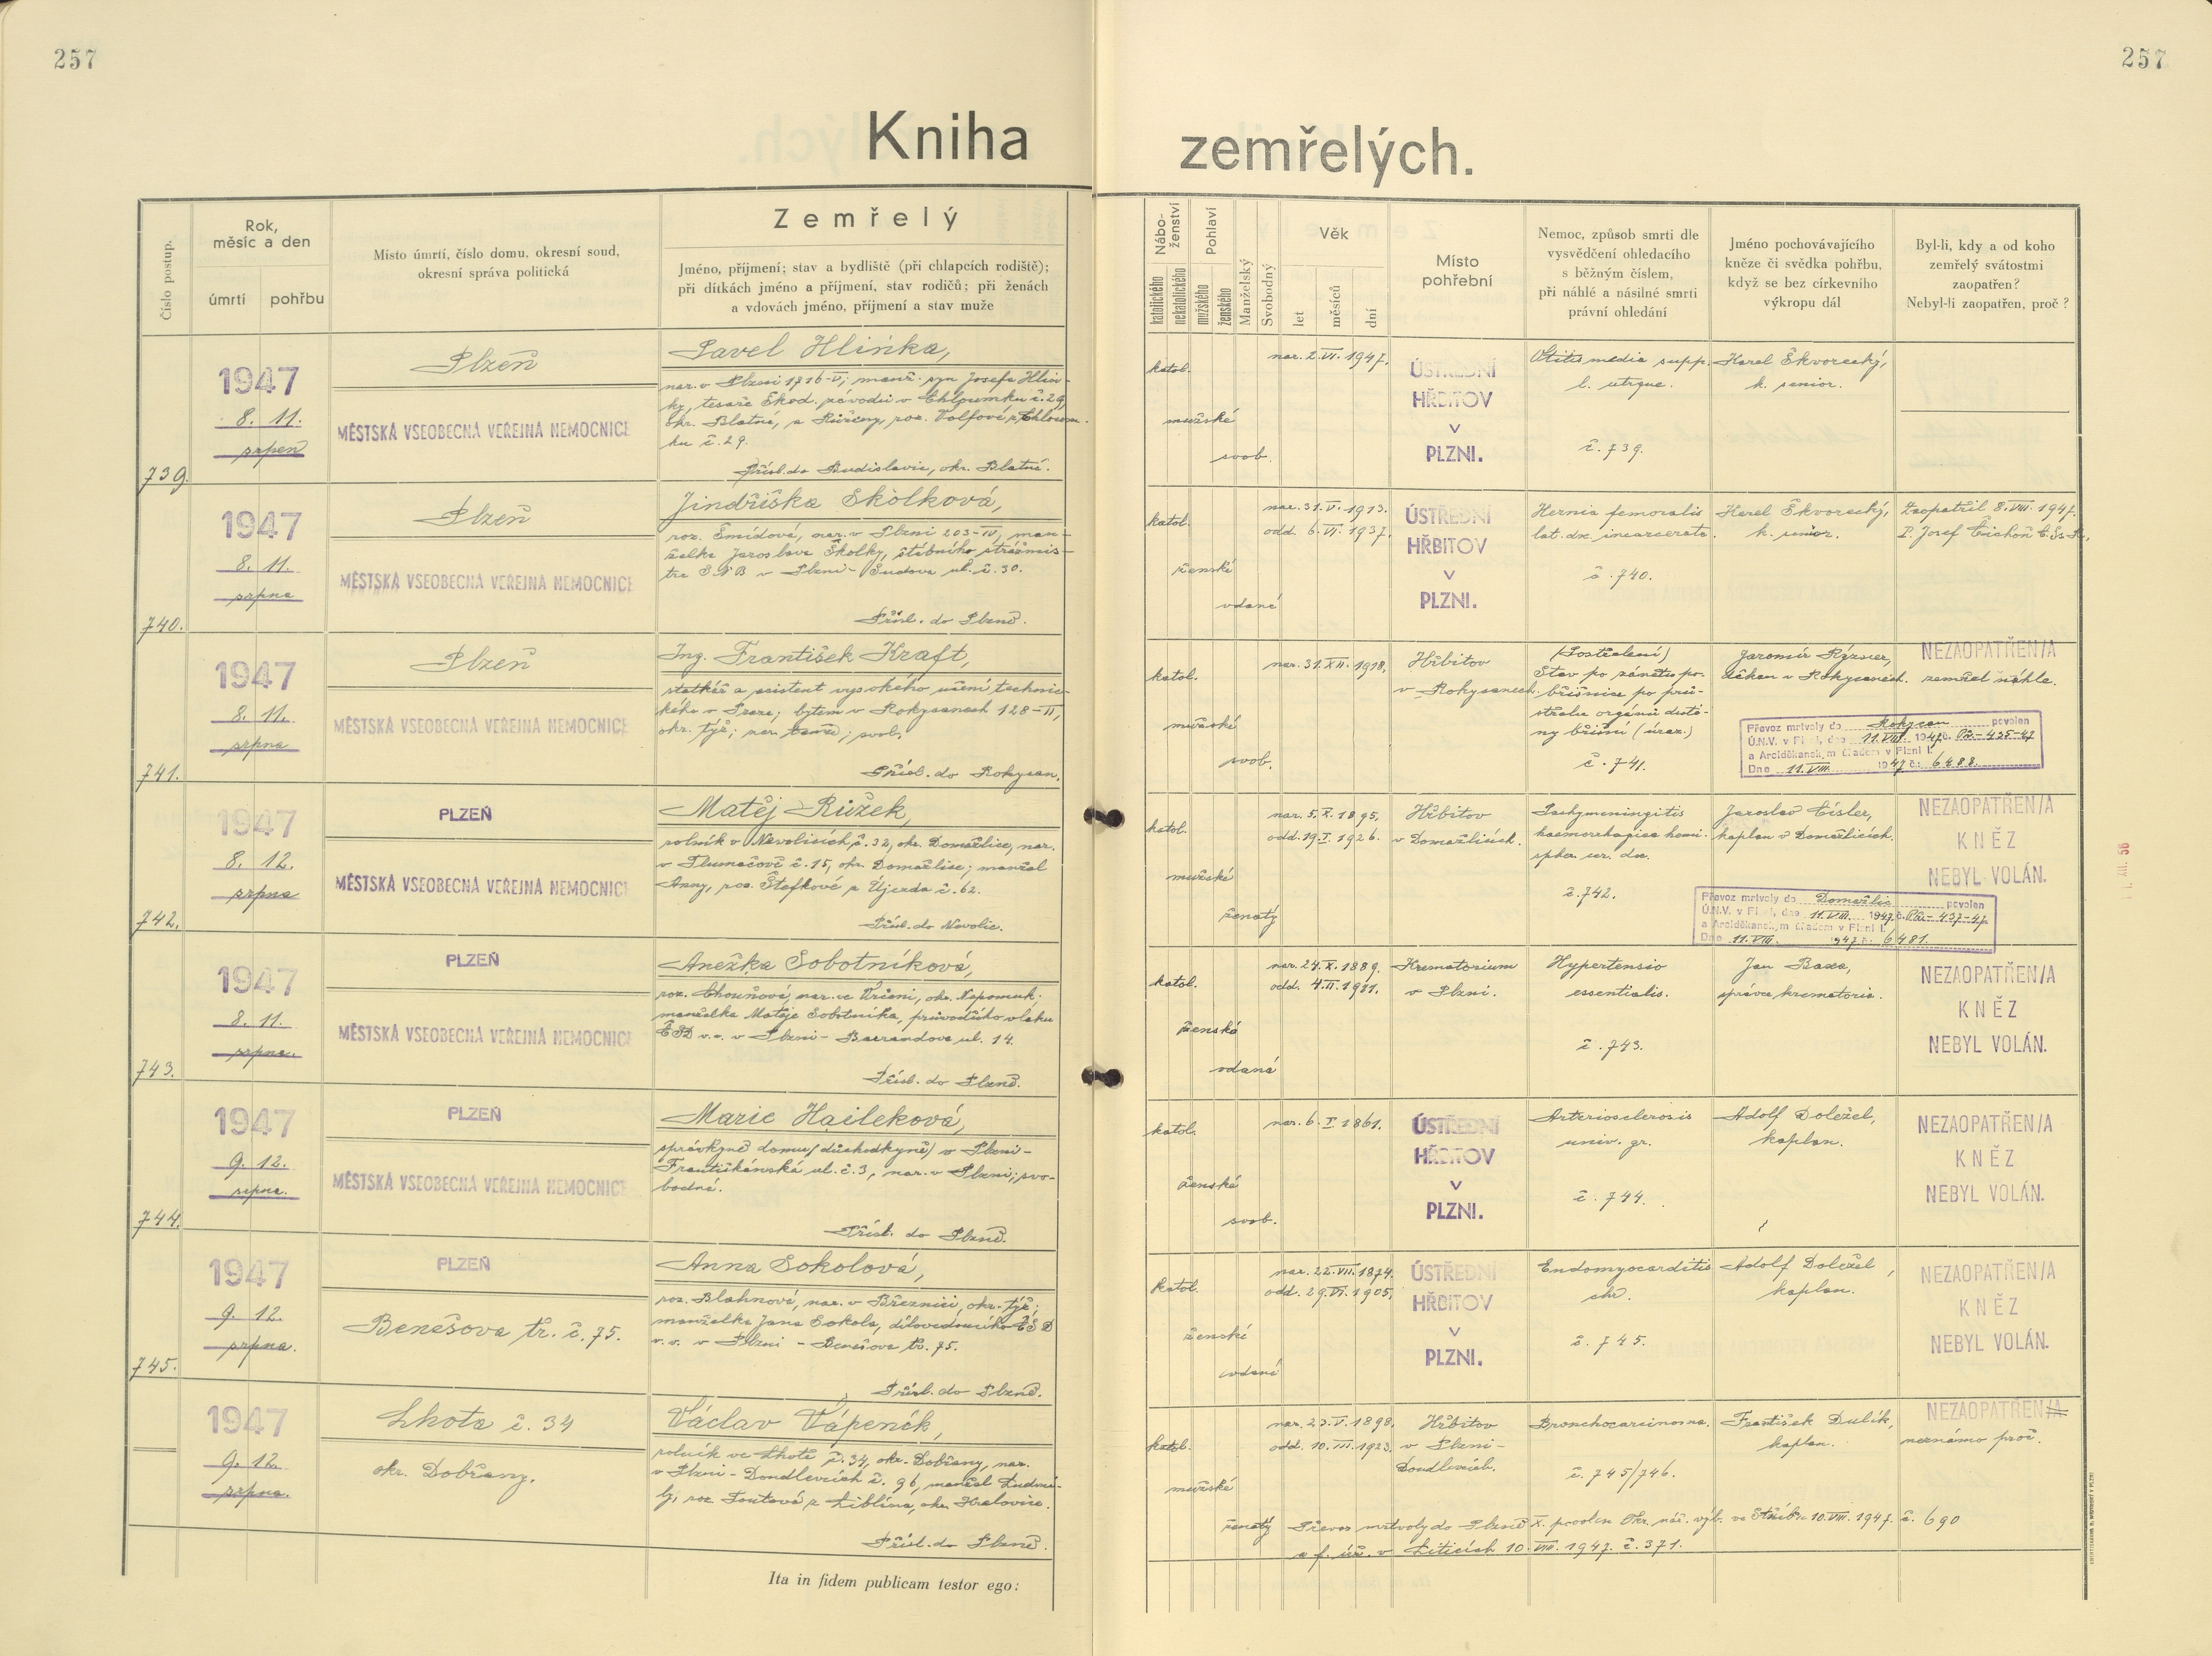 257
257
Kniha
zemřelých.
Číslo postup.
Rok,
měsíc a den
úmrtí
pohřbu
Místo úmrtí, číslo domu, okresní soud,
okresní správa politická
Zemřelý
Jméno, příjmení; stav a bydliště (při chlapcích rodiště);
při dítkách jméno a příjmení, stav rodičů; při ženách
a vdovách jméno, příjmení a stav muže
Nábo-
ženství
katolického
nekatolického
Pohlaví
mužského
ženského
Manželský
Svobodný
Věk
let
měsíců
dní
Místo
pohřební
Nemoc, způsob smrti dle
vysvědčení ohledacího
s běžným číslem,
při náhlé a násilné smrti
právní ohledání
Jméno pochovávajícího
kněze či svědka pohřbu,
když se bez církevního
výkropu dál
Byl-li, kdy a od koho
zemřelý svátostmi
zaopatřen?
Nebyl-li zaopatřen, proč?
739.
1947
8. 11.
srpen
Plzeň
MĚSTSKÁ VŠEOBECNÁ VEŘEJNÁ NEMOCNICE
Pavel Hlinka,
nar. v Plzni 1716-V; manž. syn Josefa Hlin-
ky, tesaře Škod. závodů v Chlumku č. 29,
okr. Blatná, a Růženy, roz. Volfové z Chlum-
ku č. 29.
Přísl. do Budislavic, okr. Blatná.
katol.
mužské
svob.
nar. 2. VI. 1947.
ÚSTŘEDNÍ
HŘBITOV
V
PLZNI.
Otitis media supp.
l. utrque.
č. 739.
Karel Škvorecký,
k. senior.
740.
1947
8. 11.
srpna
Plzeň
MĚSTSKÁ VŠEOBECNÁ VEŘEJNÁ NEMOCNICE
Jindřiška Školková,
roz. Šmídová, nar. v Plzni 203-IV, man-
želka Jaroslava Školky, štábního strážmis-
tra SNB v Plzni - ul. č. 30.
Přísl. do Plzně.
katol.
ženské
vdaná
nar. 31. V. 1913.
odd. 6. VI. 1937.
ÚSTŘEDNÍ
HŘBITOV
V
PLZNI.
Hernia femoralis
lat. dx. incarcerata.
č. 740.
Karel Škvorecký,
k. senior.
Zaopatřil 8. VIII. 1947.
P. Josef Čichoň
741.
1947
8. 11.
srpna
Plzeň
MĚSTSKÁ VŠEOBECNÁ VEŘEJNÁ NEMOCNICE
Ing. František Kraft,
statkář a asistent vysokého učení technic-
kého v Praze; bytem v Rokycanech 128-II,
okr. týž; nar. tamž; svob.
Přísl. do Rokycan.
katol.
mužské
svob.
nar. 31. XII. 1918.
Hřbitov
v Rokycanech.
(Postřelení)
Stav po zánětu po-
břišnice po prů-
střelu orgánů duti-
ny břišní (úraz.)
č. 741.
Jaromír Rýzner,
děkan v Rokycanech.
NEZAOPATŘEN/A
zemřel náhle.
Převoz mrtvoly do Rokycan povolen
Ú.N.V. v Plzni, dne 11. VIII. 1947 č. Pů-435-47
a Arciděkanským úřadem v Plzni I.
Dne 11. VIII. 1947 č. 6488.
742.
1947
8. 12.
srpna
PLZEŇ
MĚSTSKÁ VŠEOBECNÁ VEŘEJNÁ NEMOCNICE
Matěj Růžek,
rolník v Nevolicích č. 32, okr. Domažlice, nar.
v Tlumačově č. 15, okr. Domažlice; manžel
Anny, roz. Štefkové z Újezda č. 62.
Přísl. do Nevolic.
katol.
mužské
ženatý
nar. 5. X. 1895.
odd. 19. I. 1926.
Hřbitov
v Domažlicích.
Pachymeningitis
haemorrhagica hemi-
spher. cer. dx.
č. 742.
Jaroslav Císler,
kaplan v Domažlicích.
NEZAOPATŘEN/A
KNĚZ
NEBYL VOLÁN.
Převoz mrtvoly do Domažlic povolen
Ú.N.V. v Plzni, dne 11. VIII. 1947 č. Pů-437-47
a Arciděkanským úřadem v Plzni I.
Dne 11. VIII. 1947 č. 6481.
1. XII. 56
743.
1947
8. 11.
srpna.
PLZEŇ
MĚSTSKÁ VŠEOBECNÁ VEŘEJNÁ NEMOCNICE
Anežka Sobotníková,
roz. Chouňová, nar. ve Vrčeni, okr. Nepomuk;
manželka Matěje Sobotníka, průvodčího vlaku
ČSD v.v. v Plzni - Barrandova ul. 14.
Přísl. do Plzně.
katol.
ženská
vdaná
nar. 24. X. 1889.
odd. 4. II. 1911.
Krematorium
v Plzni.
Hypertensio
essentialis.
č. 743.
Jan Baxa,
správce krematoria.
NEZAOPATŘEN/A
KNĚZ
NEBYL VOLÁN.
744.
1947
9. 12.
srpna.
PLZEŇ
MĚSTSKÁ VŠEOBECNÁ VEŘEJNÁ NEMOCNICE
Marie Haileková,
správkyně domu (důchodkyně) v Plzni -
Františkánská ul. č. 3, nar. v Plzni; svo-
bodná.
Přísl. do Plzně.
katol.
ženská
svob.
nar. 6. I. 1861.
ÚSTŘEDNÍ
HŘBITOV
V
PLZNI.
Arteriosclerosis
univ. gr.
č. 744.
Adolf Doležel,
kaplan.
NEZAOPATŘEN/A
KNĚZ
NEBYL VOLÁN.
745.
1947
9. 12.
srpna.
PLZEŇ
Benešova tř. č. 75.
Anna Sokolová,
roz. Blahnová, nar. v Březnici, okr. týž;
manželka Jana Sokola, dílovedoucího ČSD
v.v. v Plzni - Benešova tř. 75.
Přísl. do Plzně.
katol.
ženské
vdaná
nar. 22. VII. 1874.
odd. 29. VI. 1905.
ÚSTŘEDNÍ
HŘBITOV
V
PLZNI.
Endomyocarditis
chr.
č. 745.
Adolf Doležel,
kaplan.
NEZAOPATŘEN/A
KNĚZ
NEBYL VOLÁN.
1947
9. 12.
srpna.
Lhota č. 34
okr. Dobřany.
Václav Vápeník,
rolník ve Lhotě č. 34, okr. Dobřany, nar.
v Plzni - Doudlevcích č. 96, manžel Ludmi-
ly, roz. Toutové z Liblína, okr. Kralovice.
Přísl. do Plzně.
katol.
mužské
ženatý
nar. 23. V. 1898.
odd. 10. III. 1923.
Hřbitov
v Plzni -
Doudlevcích.
Bronchocarcinoma.
č. 745/746.
František Dulík,
kaplan.
NEZAOPATŘEN/A
neznámo proč.
Převoz mrtvoly do Plzně X. povolen Okr. nár. výb. ve Stříbře 10. VIII. 1947. č. 690
a f. úř. v Liticích 10. VIII. 1947. č. 371.
Ita in fidem publicam testor ego: